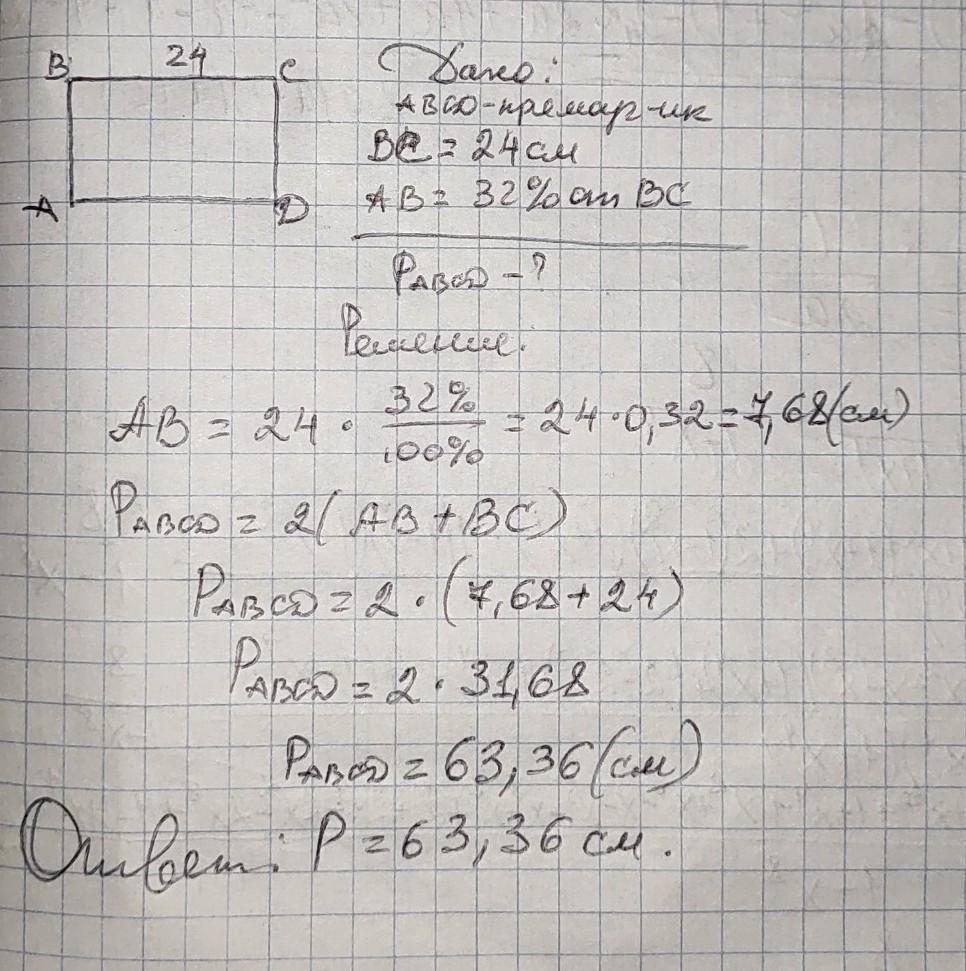 B 24 C
A D
Дано:
ABCD-прямоуг-ик
BC = 24 см
AB = 32% от BC
PABCD - ?
Решение:
AB = 24 · 32%/100% = 24 · 0,32 = 7,68 (см)
PABCD = 2(AB + BC)
PABCD = 2 · (7,68 + 24)
PABCD = 2 · 31,68
PABCD = 63,36 (см)
Ответ: P = 63,36 см.